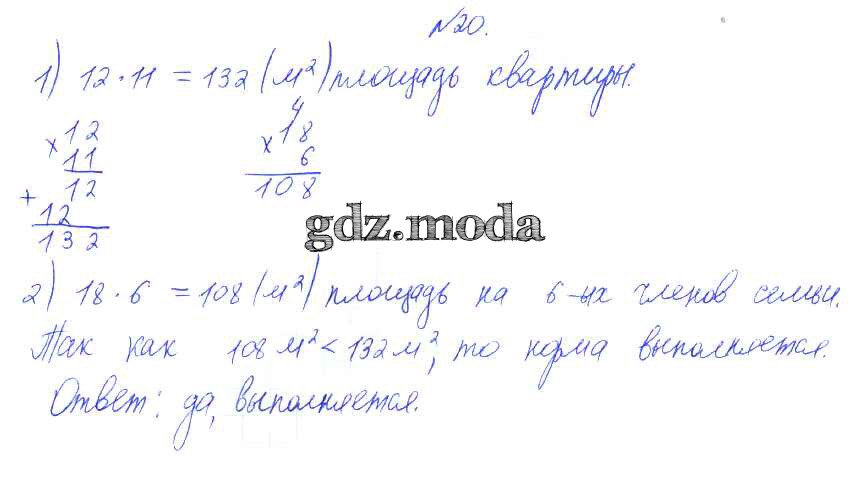 №20.
1) 12·11 = 132 (м²) площадь квартиры.
4
×12 ×18
11 6
+ 12 108
12
132
gdz.moda
2) 18·6 = 108 (м²) площадь на 6-ых членов семьи.
Так как 108 м² < 132 м², то норма выполняется.
Ответ: да, выполняется.